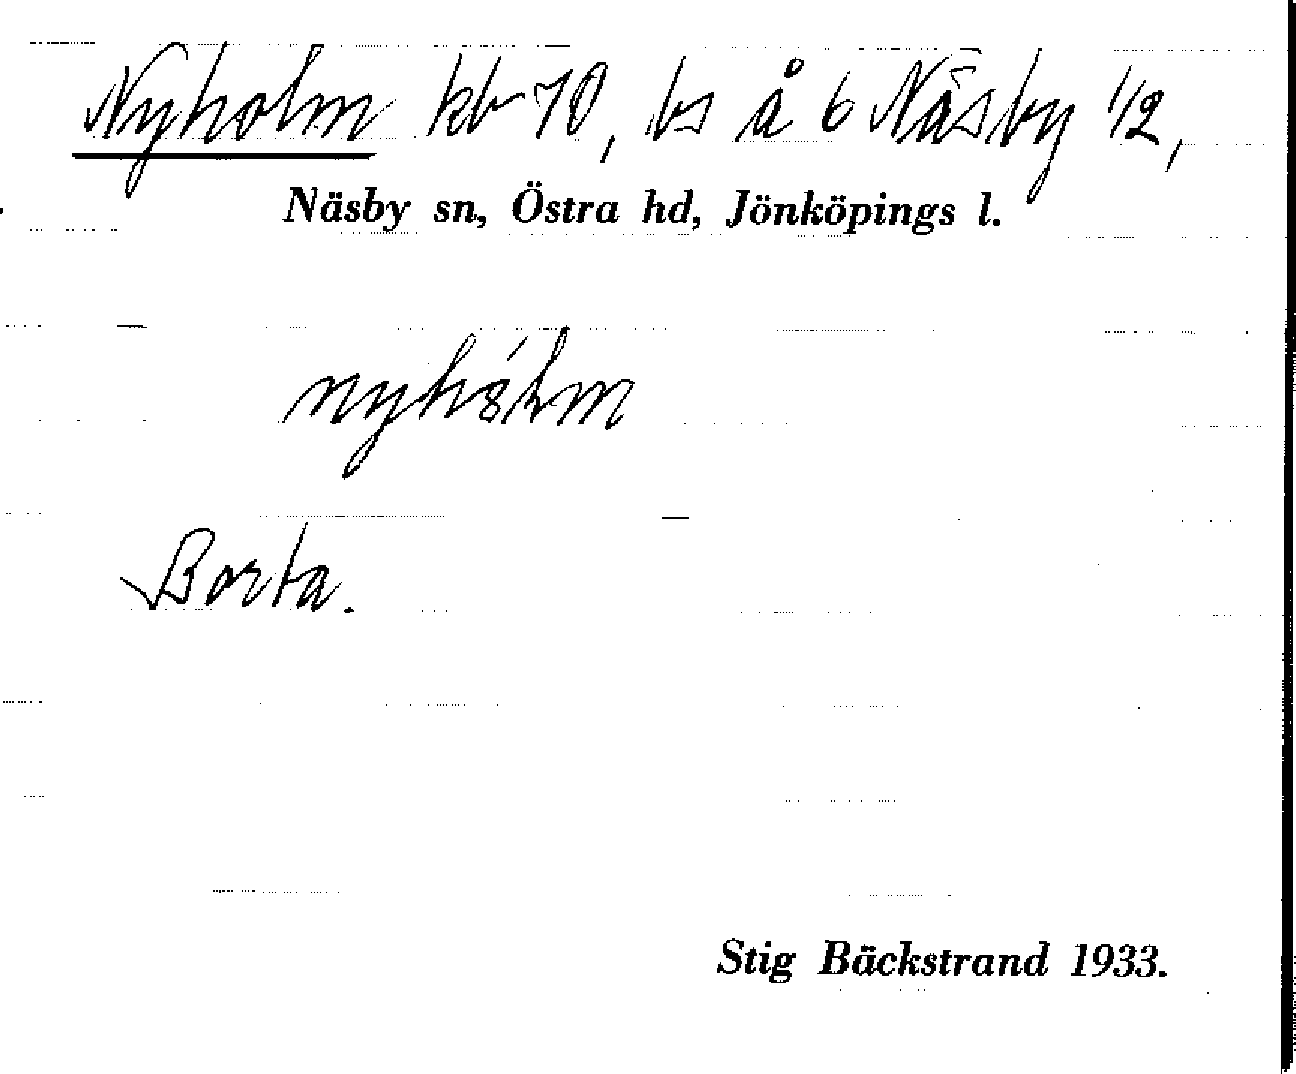 Nyholm kb 70, bs å 6 Näsby 1/2,
Näsby sn, Östra hd, Jönköpings l.
nyhólm
Borta.
Stig Bäckstrand 1933.